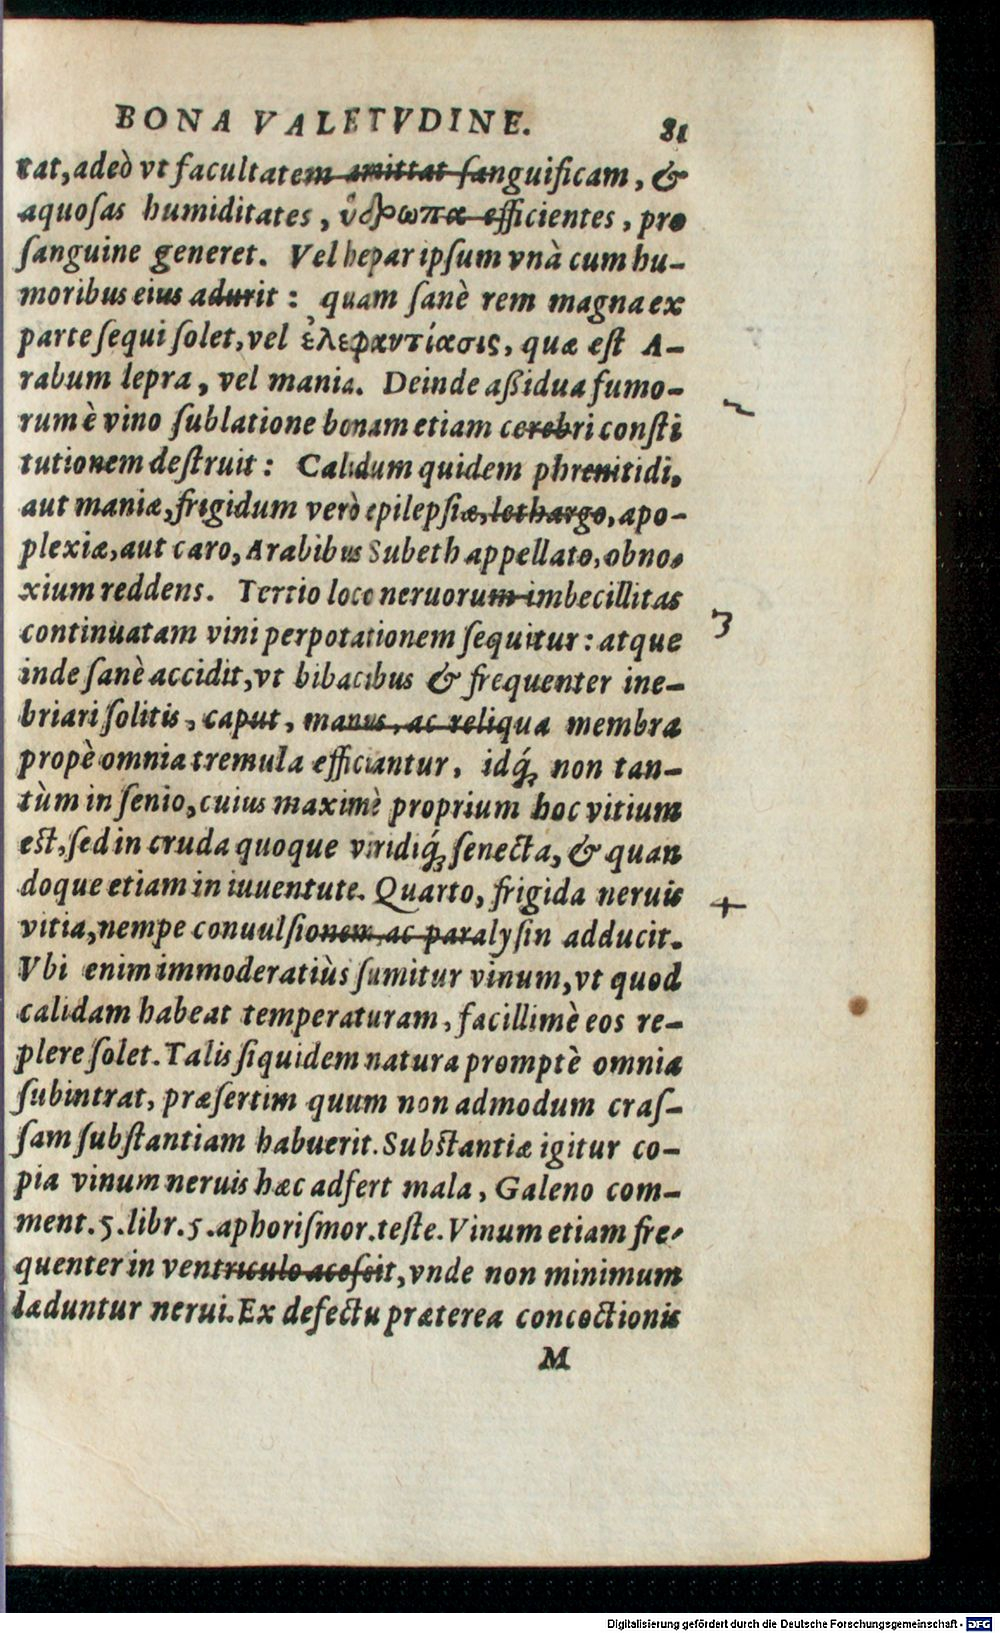 BONA VALETVDINE. 81
tat, adeò vt facultatem amittat sanguificam, &
aquosas humiditates, ὕδρωπα efficientes, pro
sanguine generet. Vel hepar ipsum vnà cum hu-
moribus eius adurit: quam sanè rem magna ex
parte sequi solet, vel ἐλεφαντίασις, quæ est A-
rabum lepra, vel mania. Deinde aßidua fumo-
rum è vino sublatione bonam etiam cerebri consti
tutionem destruit: Calidum quidem phrenitidi,
aut maniæ, frigidum verò epilepsiæ, lethargo, apo-
plexiæ, aut caro, Arabibus Subeth appellato, obno-
xium reddens. Tertio loco neruorum imbecillitas
continuatam vini perpotationem sequitur: atque
inde sanè accidit, vt bibacibus & frequenter ine-
briari solitis, caput, manus, ac reliqua membra
propè omnia tremula efficiantur, idq́; non tan-
tùm in senio, cuius maximè proprium hoc vitium
est, sed in cruda quoque viridiq́; senecta, & quan
doque etiam in iuuentute. Quarto, frigida neruis
vitia, nempe conuulsionem, ac paralysin adducit.
Vbi enim immoderatiùs sumitur vinum, vt quod
calidam habeat temperaturam, facillimè eos re-
plere solet. Talis siquidem natura promptè omnia
subintrat, præsertim quum non admodum cras-
sam substantiam habuerit. Substantiæ igitur co-
pia vinum neruis hæc adfert mala, Galeno com-
ment. 5. libr. 5. aphorismor. teste. Vinum etiam fre-
quenter in ventriculo acescit, vnde non minimum
læduntur nerui. Ex defectu præterea concoctionis
M
3
4
Digitalisierung gefördert durch die Deutsche Forschungsgemeinschaft - DFG